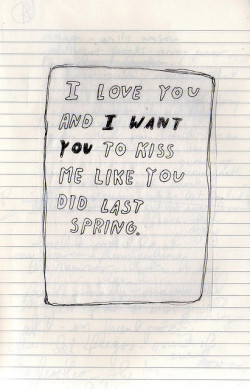 I LOVE YOU
AND I WANT
YOU TO KISS
ME LIKE YOU
DID LAST
SPRING.